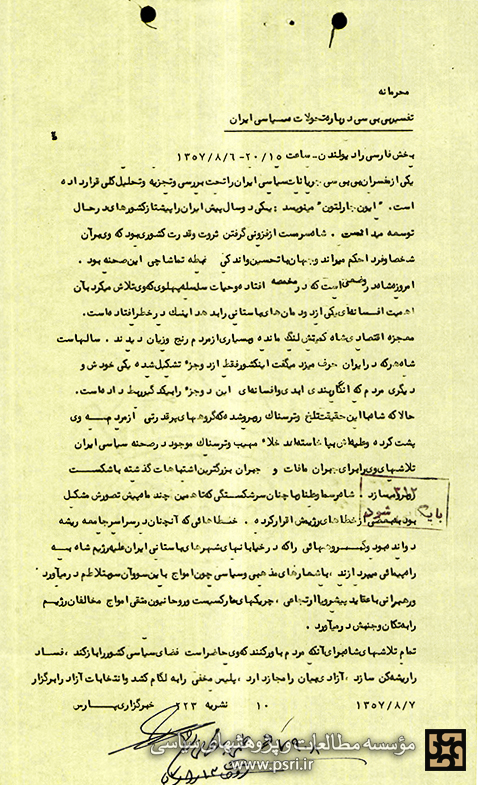 محرمانه
تفسیر بی بی سی درباره تحولات سیاسی ایران
بخش فارسی رادیو لندن - ساعت ۲۰/۱۵ - ۱۳۵۷/۸/۶
یکی از مفسران بی بی سی جریانات سیاسی ایران را تحت بررسی و تجزیه و تحلیل کلی قرار داده
است . " ایون چارلتون " مینویسد : یکی دو سال پیش ایران را پیشتاز کشورهای در حال
توسعه میدانست . شاه سرمست از فزونی گرفتن ثروت و قدرت کشوری بود که وی برآن
شخصا و فردا حکم میراند و جهان با تحسین واندکی غبطه تماشاچی این صحنه بود .
امروز شاه در وضعی است که در مخمصه افتاده و حیات سلسله پهلوی که وی تلاش میکرد بآن
اهمیت افسانه‌ای یکی از دودمان های باستانی را بدهد اینک در خطر افتاده است .
معجزه اقتصادی شاه کمیتش لنگ مانده و بسیاری از مردم رنج و زیان دیدند . سالهاست
شاه هر که در ایران حرف میزد میگفت اینکشور فقط از دو جزء تشکیل شده یکی خودش و
دیگری مردم که انگار پیوندی ابدی و افسانه‌ای این دو جزء را بیکدیگر ربط داده است .
حالا که شاه با این حقیقت تلخ و ترسناک روبرو شده که گروههای پر قدرتی از مردم به وی
پشت کرده و علیه‌اش بپا خاسته‌اند خلاء مهیب و ترسناک موجود در صحنه سیاسی ایران
تلاشهای وی را برای جبران مافات و جبران بزرگترین اشتباهات گذشته با شکست
روبرو میسازد . شاه رسما و علنا و با چنان سرشکستگی که تا همین چند ماه پیش تصورش مشکل
بود به بعضی از خطاهای رژیمش اقرار کرده . خطاهائی که آنچنان در سراسر جامعه ریشه
دوانده بود و گروههائی را که در خیابانهای شهرهای باستانی ایران علیه رژیم شاه به
راهپیمائی میپردازند ، با شعارهای مذهبی و سیاسی چون امواج با این سو و آن سو متلاطم در میآورد .
و رهبرانی با عقاید پیشرو یا ارتجاعی ، چریکهای مارکسیست و روحانیون متقی امواج مخالفان رژیم
را به تکان و جنبش در میآورد .
تمام تلاشهای شاه برای آنکه مردم باور کنند که وی حاضر است فضای سیاسی کشور را باز کند ، فساد
را ریشه کن سازد ، آزادی بیان را مجاز دارد ، پلیس مخفی را به لگام کشد و انتخابات آزاد را برگزار
۱۳۵۷/۸/۷ ۱۰ نشریه ۲۲۳ خبرگزاری پارس
۳۱۲
بایگانی شود
مؤسسه مطالعات و پژوهشهای سیاسی
www.psri.ir